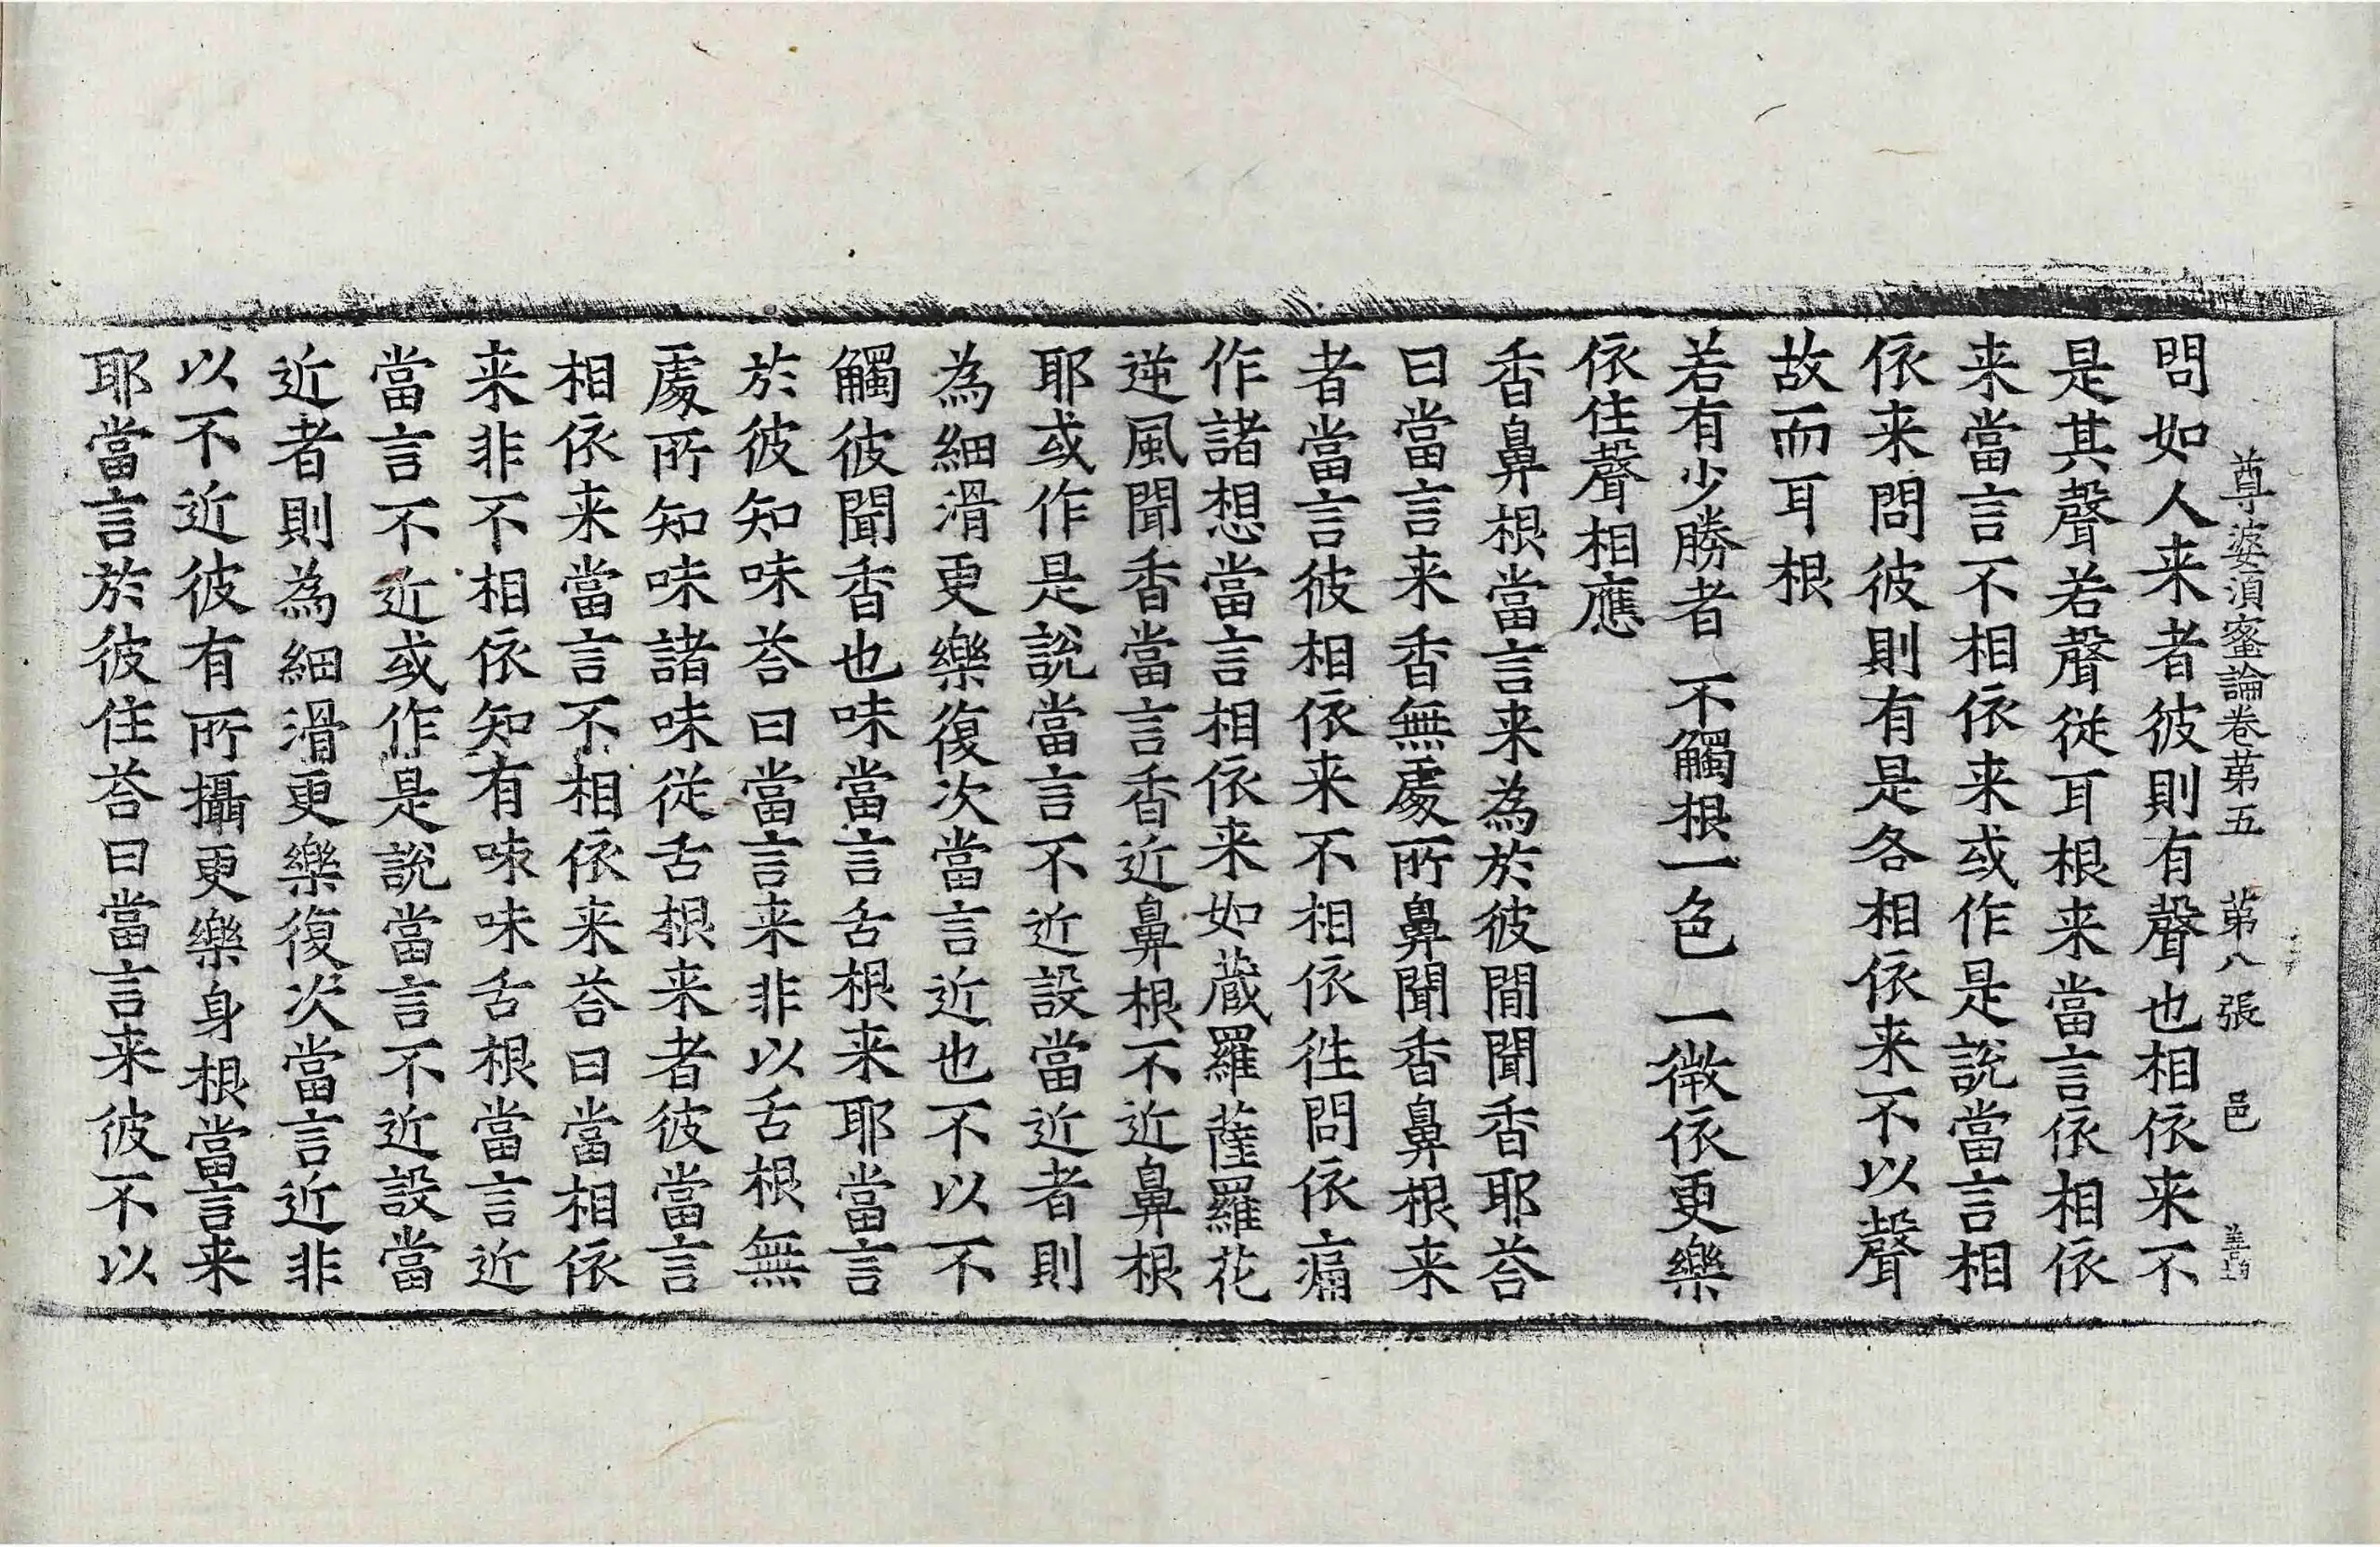 尊婆湏蜜論卷苐五　苐八張　邑
問如人来者彼則有聲也相依来不
是其聲若聲從耳根来當言依相依
来當言不相依来或作是說當言相
依来問彼則有是各相依来不以聲
故而耳根
若有少勝者　不觸根一色　一微依更樂
依住聲相應
香鼻根當言来為於彼間聞香耶荅
曰當言来香無處所鼻聞香鼻根来
者當言彼相依来不相依徃問依痛
作諸想當言相依来如蔵羅薩羅花
逆風聞香當言香近鼻根不近鼻根
耶或作是說當言不近設當近者則
為細滑更樂復次當言近也不以不
觸彼聞香也味當言舌根来耶當言
於彼知味荅曰當言来非以舌根無
處所知味諸味從舌根来者彼當言
相依来當言不相依来荅曰當相依
来非不相依知有味味舌根當言近
當言不近或作是說當言不近設當
近者則為細滑更樂復次當言近非
以不近彼有所攝更樂身根當言来
耶當言於彼住荅曰當言来彼不以